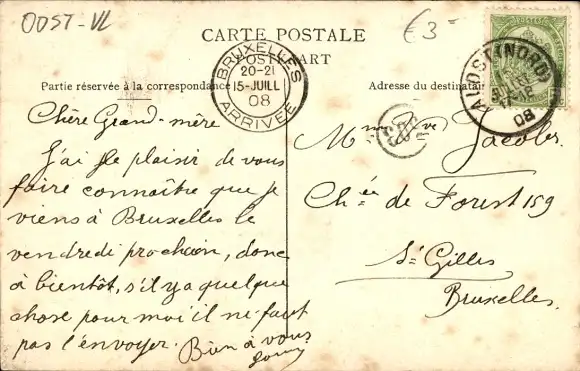 OOST-VL
€3-
CARTE POSTALE
POSTCART
Partie réservée à la correspondance
Adresse du destinataire
BRUXELLES
20-21
15-JUILL
08
ARRIVÉE
ALOST (NORD)
08
Chère Grand-mère
J'ai le plaisir de vous
faire connaître que je
viens à Bruxelles le
vendredi prochain, donc
à bientôt, s'il y a quelque
chose pour moi il ne faut
pas l'envoyer. Bien à vous
Mme Ve Jacobs.
Chée de Forest 159
St Gilles
Bruxelles.